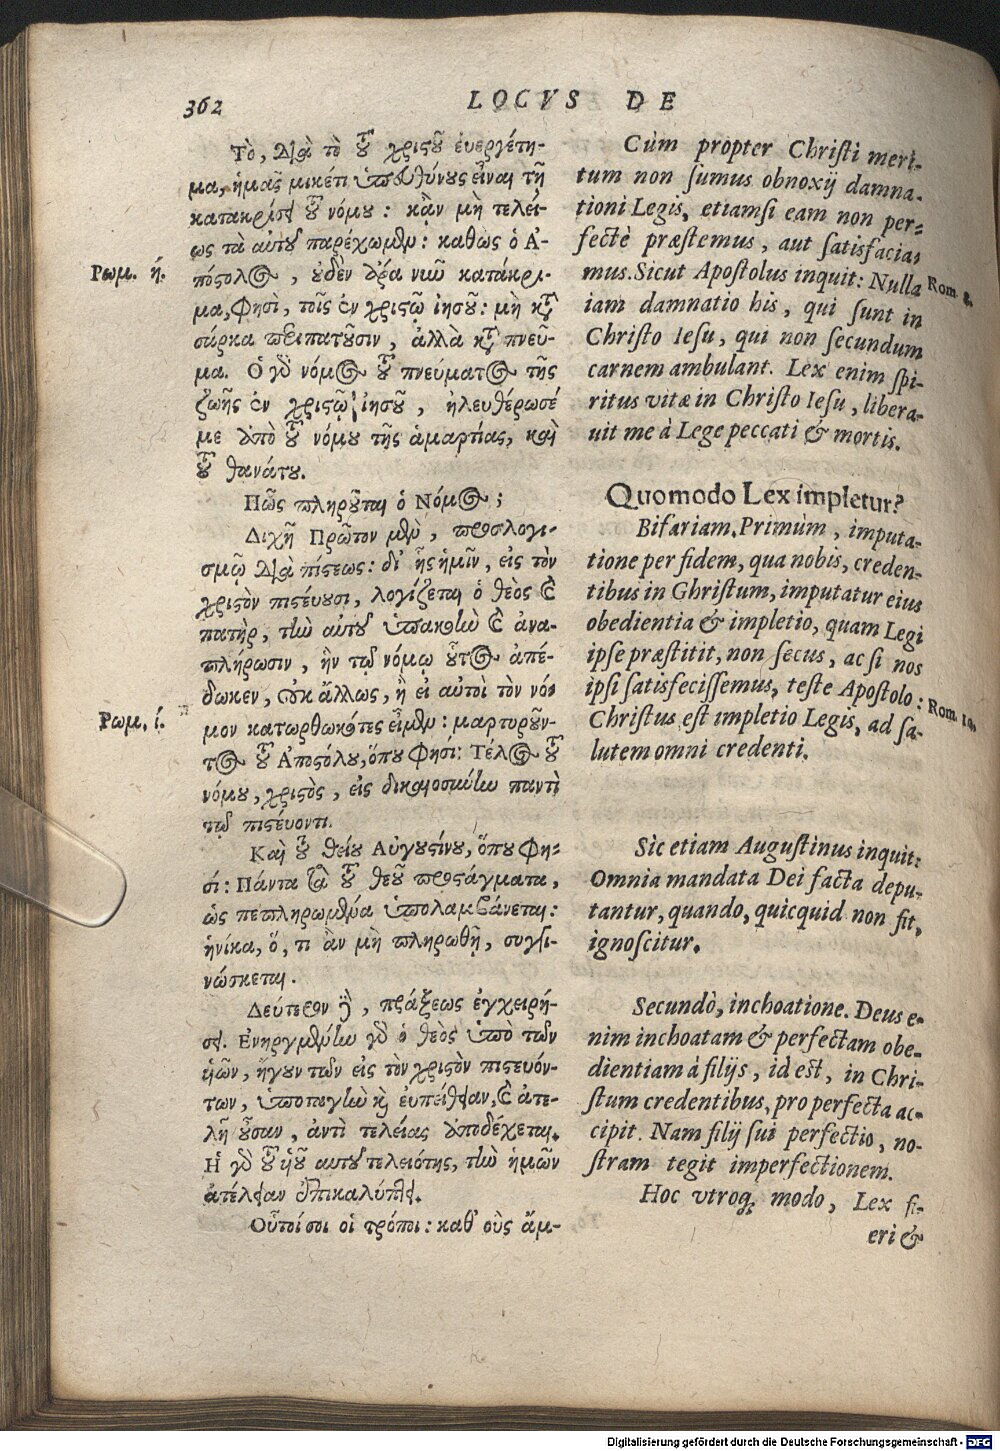 362
LOCVS DE
Τὸ, διὰ τὸ τοῦ χριστοῦ ἐυεργέτη-
μα, ἡμᾶς μικέτι ὑπευθύνους εἶναι τῇ
κατακρίσει τοῦ νόμου: κἂν μὴ τελεί-
ως τὰ αὐτοῦ παρέχωμεν: καθὼς ὁ Ἀ-
Ρωμ. ή.
πόστολος, οὐδὲν ἄρα νιῶ κατάκρι-
μα, φησὶ, τοῖς ἐν χριστῷ ἰησοῦ: μὴ κατὰ
σάρκα περιπατοῦσιν, ἀλλὰ κατὰ πνεῦ-
μα. Ὁ γὸ νόμος τοῦ πνεύματος τῆς
ζωῆς ἐν χριστῷ ἰησοῦ, ἠλευθέρωσέ
με ἀπὸ τοῦ νόμου τῆς ἁμαρτίας, καὶ
τοῦ θανάτου.
Πῶς πληροῦται ὁ Νόμος;
Διχῆ Πρῶτον μὲν, προσλογι-
σμῷ διὰ πίστεως: δι' ἧς ἡμῖν, εἰς τὸν
χριστὸν πιστέυουσι, λογίζεται ὁ θεὸς καὶ
πατὴρ, τὴν αὐτοῦ ὑπακοὴν καὶ ἀνα-
πλήρωσιν, ἣν τῷ νόμῳ οὗτος ἀπέ-
δωκεν, οὐκ ἄλλως, ἢ εἰ αὐτοὶ τὸν νό-
Ρωμ. ί.
μον κατωρθωκότες εἶμεν: μαρτυροῦν-
τος τοῦ Ἀποστόλου, ὅπου φησί: Τέλος τοῦ
νόμου, χριστὸς, εἰς δικαιοσύνην παντὶ
τῷ πιστέυοντι.
Καὶ τοῦ θείου Αὐγουστίνου, ὅπου φη-
σί: Πάντα τὰ τοῦ θεοῦ προστάγματα,
ὡς πεπληρωμένα ὑπολαμβάνεται:
ἡνίκα, ὅ, τι ἂν μὴ πληρωθῇ, συγγι-
νώσκεται.
Δεύτερον δὲ, πράξεως ἐγχειρή-
σει. Ἐνηργμένην γὸ ὁ θεὸς ὑπὸ τῶν
ὑῶν, ἤγουν τῶν εἰς τὸν χριστὸν πιστευόν-
των, ὑποταγὴν καὶ ἐυπείθειαν, καὶ ἀτε-
λῆ οὖσαν, ἀντὶ τελείας ἀποδέχεται.
Ἡ γὸ τοῦ ὑοῦ αυτοῦ τελειότης, τὴν ἡμῶν
ἀτέλειαν ἐπικαλύπτει.
Οὗτοί σοι οἱ τρόποι: καθ' οὓς ἄμ-
Cùm propter Christi meri-
tum non sumus obnoxij damna-
tioni Legis, etiamsi eam non per-
fectè præstemus, aut satisfacia-
mus. Sicut Apostolus inquit: Nulla
Rom. 8.
iam damnatio his, qui sunt in
Christo Iesu, qui non secundum
carnem ambulant. Lex enim spi-
ritus vitæ in Christo Iesu, libera-
uit me à Lege peccati & mortis.
Quomodo Lex impletur?
Bifariam. Primùm, imputa-
tione per fidem, qua nobis, creden-
tibus in Ghristum, imputatur eius
obedientia & impletio, quam Legi
ipse præstitit, non secus, ac si nos
ipsi satisfecissemus, teste Apostolo:
Rom. 10.
Christus est impletio Legis, ad sa-
lutem omni credenti.
Sic etiam Augustinus inquit:
Omnia mandata Dei facta depu-
tantur, quando, quicquid non fit,
ignoscitur.
Secundò, inchoatione. Deus e-
nim inchoatam & perfectam obe-
dientiam à filijs, id est, in Chri-
stum credentibus, pro perfecta ac-
cipit. Nam filij sui perfectio, no-
stram tegit imperfectionem.
Hoc vtroq; modo, Lex fi-
eri &
Digitalisierung gefördert durch die Deutsche Forschungsgemeinschaft - DFG